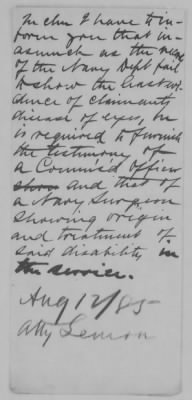 In clm I have to in-
form you that in-
asmuch as the rec'ds
of the Navy Dept fail
to show the least evi-
dence of claimants
disease of eyes, he
is required to furnish
the testimony of
a Commis'd Officer
and that of
a Navy Surgeon
showing origin
and treatment of
said disability in
the service.
Aug 12/85-
Atty Lemon